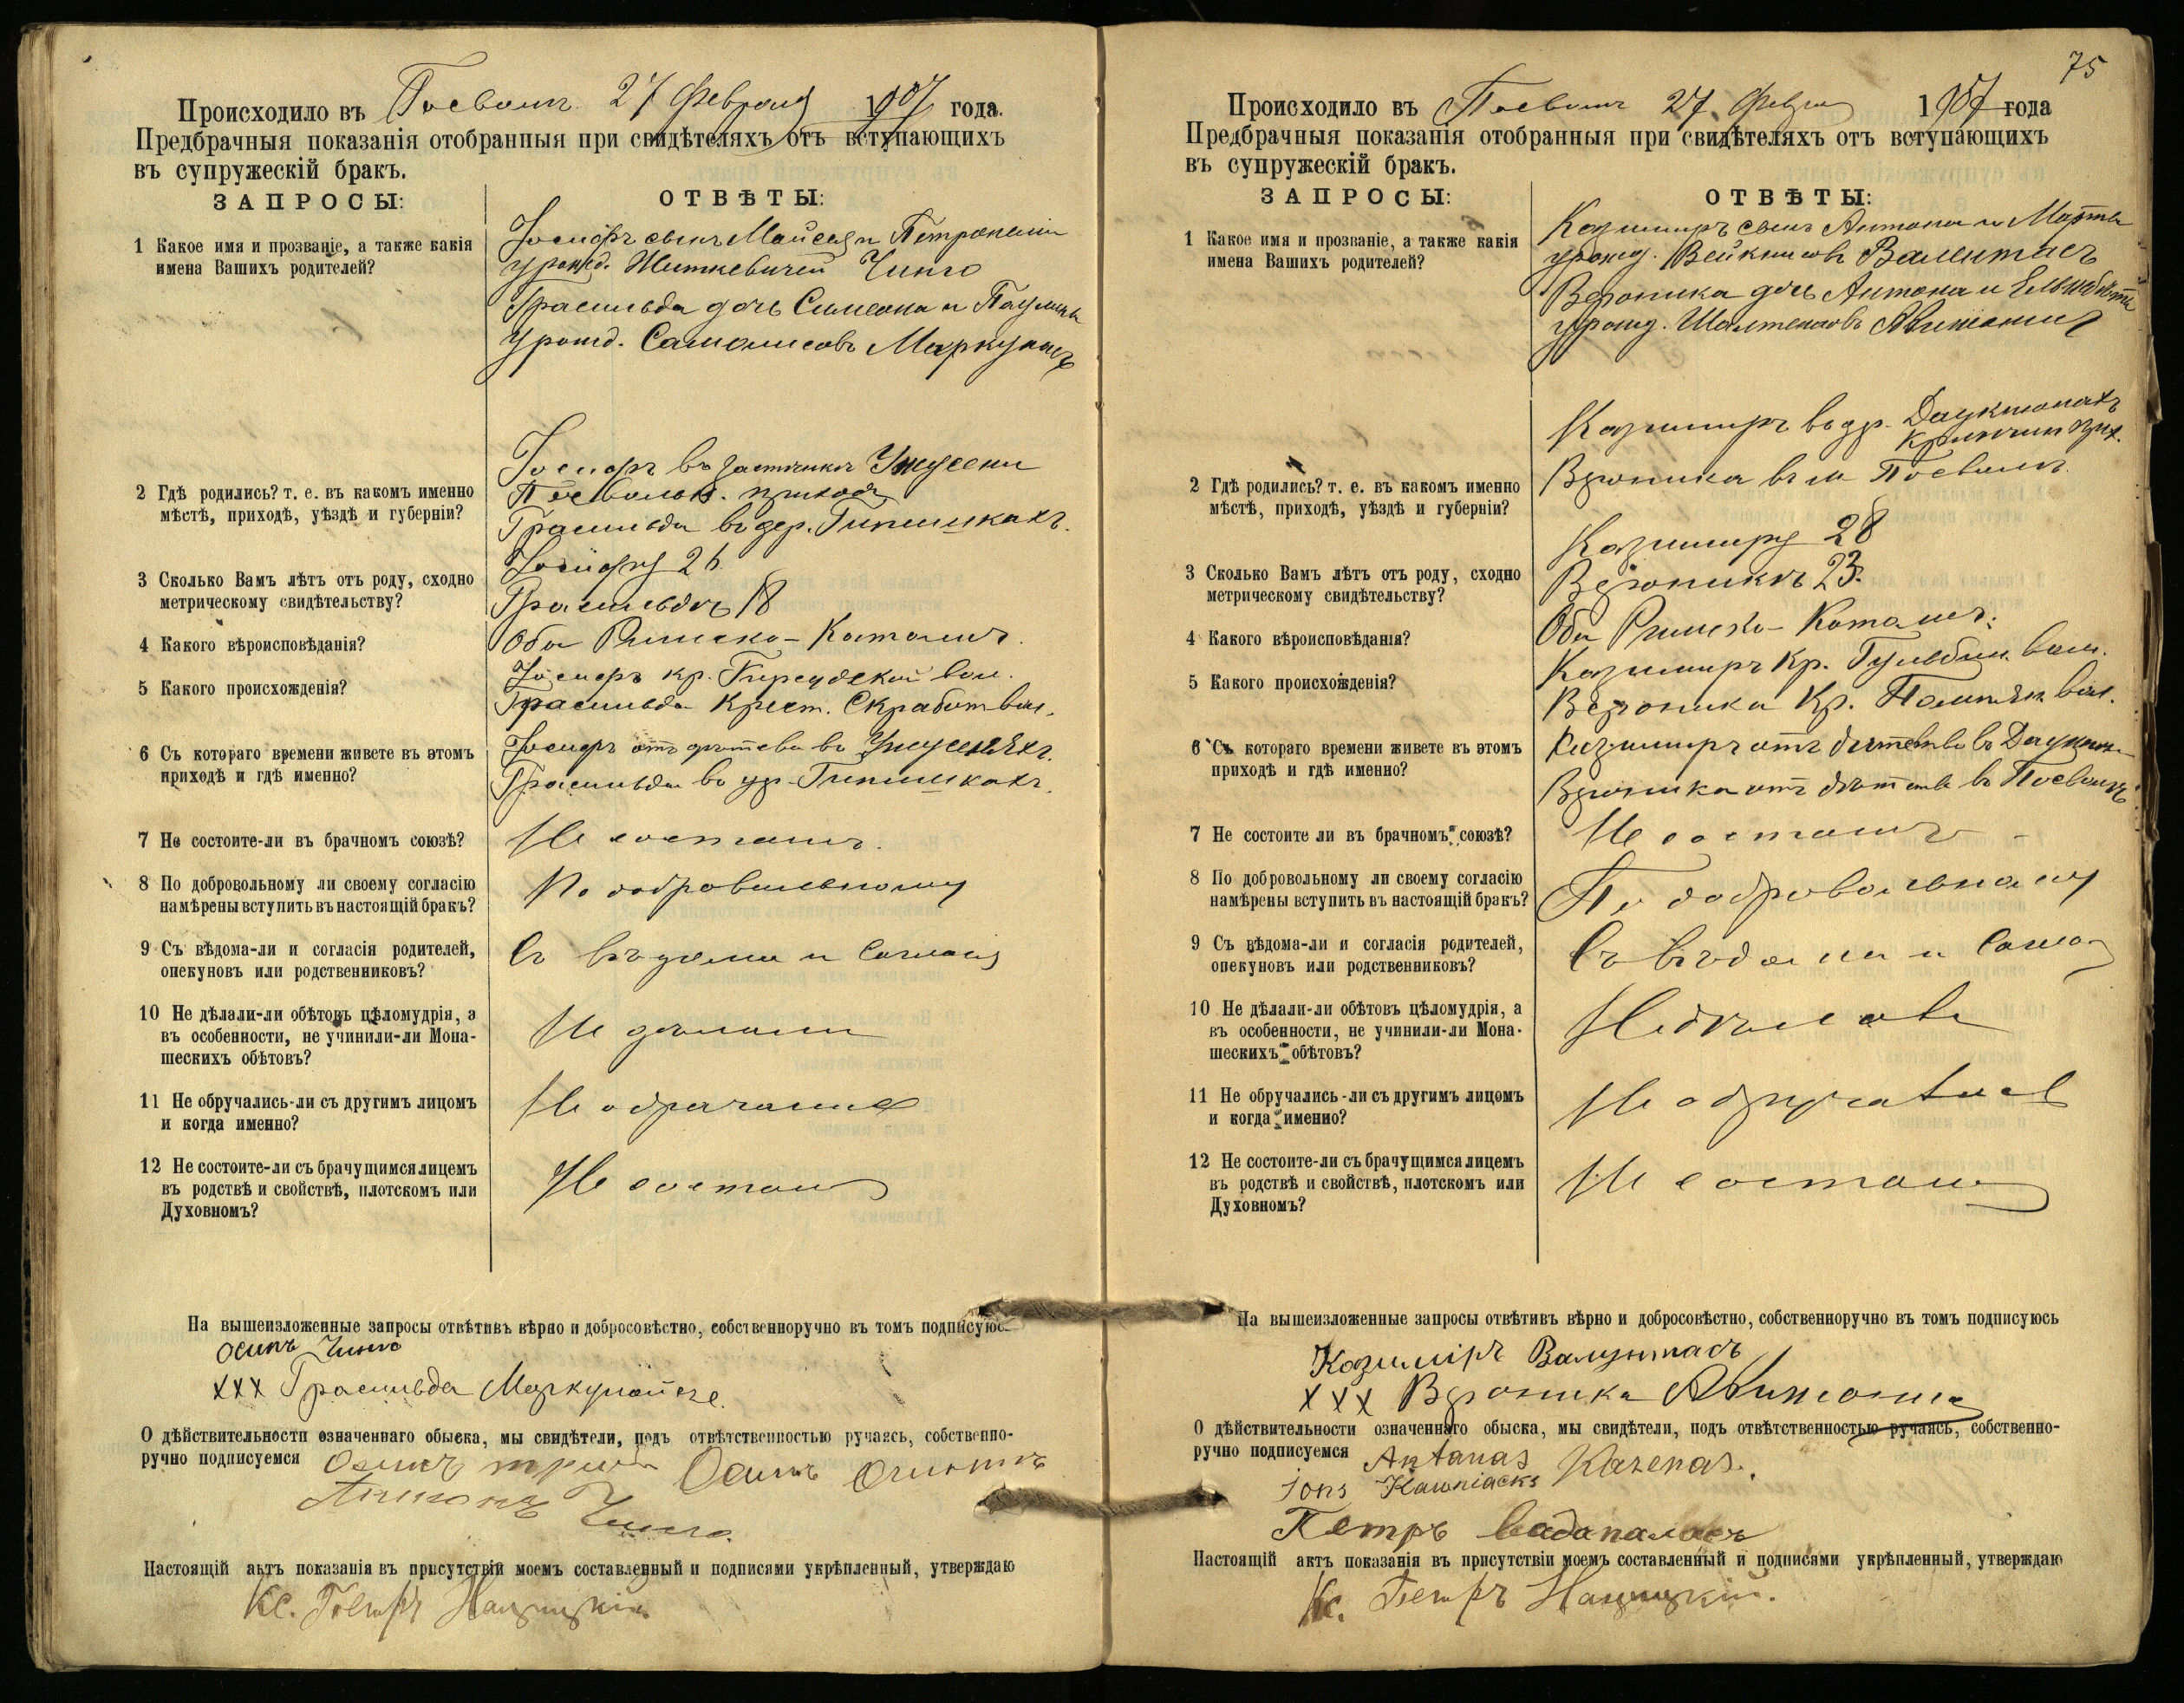 Происходило въ Посволѣ 27 Февраля 1907 года.
Предбрачныя показанія отобранныя при свидѣтеляхъ отъ вступающихъ
въ супружескій бракъ.
ЗАПРОСЫ:
ОТВѢТЫ:
1 Какое имя и прозваніе, а также какія
имена Вашихъ родителей?
Іосифъ сынъ Моисея и Петронели
урожд. Житкевичей Чинго
Грасильда дочь Симеона и Паулины
урожд. Самолисовъ Маркунасъ
2 Гдѣ родились? т. е. въ какомъ именно
мѣстѣ, приходѣ, уѣздѣ и губерніи?
Іосифъ въ застѣнкѣ
Посвольс. прихода
Грасильда въ дер. Гипишкахъ.
3 Сколько Вамъ лѣтъ отъ роду, сходно
метрическому свидѣтельству?
Іосифу 26
Грасильдѣ 18
4 Какого вѣроисповѣданія?
Оба Римско-Католич.
5 Какого происхожденія?
Іосифъ кр. вол.
Грасильда Крест. Скработ. вол.
6 Съ котораго времени живете въ этомъ
приходѣ и гдѣ именно?
Іосифъ отъ дѣтства въ
Грасильда въ др. Гипишкахъ.
7 Не состоите-ли въ брачномъ союзѣ?
Не состоимъ.
8 По добровольному ли своему согласію
намѣрены вступить въ настоящій бракъ?
По добровольному
9 Съ вѣдома-ли и согласія родителей,
опекуновъ или родственниковъ?
Съ вѣдома и согласія
10 Не дѣлали-ли обѣтовъ цѣломудрія, а
въ особенности, не учинили-ли Мона-
шескихъ обѣтовъ?
Не дѣлали
11 Не обручались-ли съ другимъ лицомъ
и когда именно?
Не обручались
12 Не состоите-ли съ брачущимся лицемъ
въ родствѣ и свойствѣ, плотскомъ или
Духовномъ?
Не состоимъ
На вышеизложенные запросы отвѣтивъ вѣрно и добросовѣстно, собственноручно въ томъ подписуюс
Осипъ Чинго
ххх Грасильда Маркунайте.
О дѣйствительности означеннаго обыска, мы свидѣтели, подъ отвѣтственностью ручаясь, собственно-
ручно подписуемся Осипъ Осипъ
Антонъ Чинго.
Настоящій актъ показанія въ присутствіи моемъ составленный и подписями укрѣпленный, утверждаю
Кс. Петръ
75
Происходило въ Посволѣ 27 Февра 1907 года
Предбрачныя показанія отобранныя при свидѣтеляхъ отъ вступающихъ
въ супружескій бракъ.
ЗАПРОСЫ:
ОТВѢТЫ:
1 Какое имя и прозваніе, а также какія
имена Вашихъ родителей?
Казимиръ сынъ Антона и Марты
урожд. Вейкнисовъ Валентасъ
Вероника дочь Антона и Ельжбѣты
урожд. Шалтенисовъ
2 Гдѣ родились? т. е. въ какомъ именно
мѣстѣ, приходѣ, уѣздѣ и губерніи?
Казимиръ въ др. Даукшонахъ
Кринчин. прих.
Вероника въ м. Посволѣ.
3 Сколько Вамъ лѣтъ отъ роду, сходно
метрическому свидѣтельству?
Казимиру 28
Вероникѣ 23.
4 Какого вѣроисповѣданія?
Оба Римско-Католич.
5 Какого происхожденія?
Казимиръ Кр. Гульбин. вол.
Вероника Кр. Помпян. вол.
6 Съ котораго времени живете въ этомъ
приходѣ и гдѣ именно?
Казимиръ отъ дѣтства въ Даукшон
Вероника отъ дѣтства въ Посволѣ
7 Не состоите ли въ брачномъ союзѣ?
Не состоимъ
8 По добровольному ли своему согласію
намѣрены вступить въ настоящій бракъ?
По добровольному
9 Съ вѣдома-ли и согласія родителей,
опекуновъ или родственниковъ?
Съ вѣдома и соглас
10 Не дѣлали-ли обѣтовъ цѣломудрія, а
въ особенности, не учинили-ли Мона-
шескихъ обѣтовъ?
Не дѣлали
11 Не обручались-ли съ другимъ лицомъ
и когда именно?
Не обручались
12 Не состоите-ли съ брачущимся лицемъ
въ родствѣ и свойствѣ, плотскомъ или
Духовномъ?
Не состоимъ
На вышеизложенные запросы отвѣтивъ вѣрно и добросовѣстно, собственноручно въ томъ подписуюсь
Казиміръ Валунтасъ
ххх Вероника
О дѣйствительности означеннаго обыска, мы свидѣтели, подъ отвѣтственностью ручаясь, собственно-
ручно подписуемся Antanas Kazenas.
Jons Kawniacks
Петръ Вадапаласъ
Настоящій актъ показанія въ присутствіи моемъ составленный и подписями укрѣпленный, утверждаю
Кс. Петръ